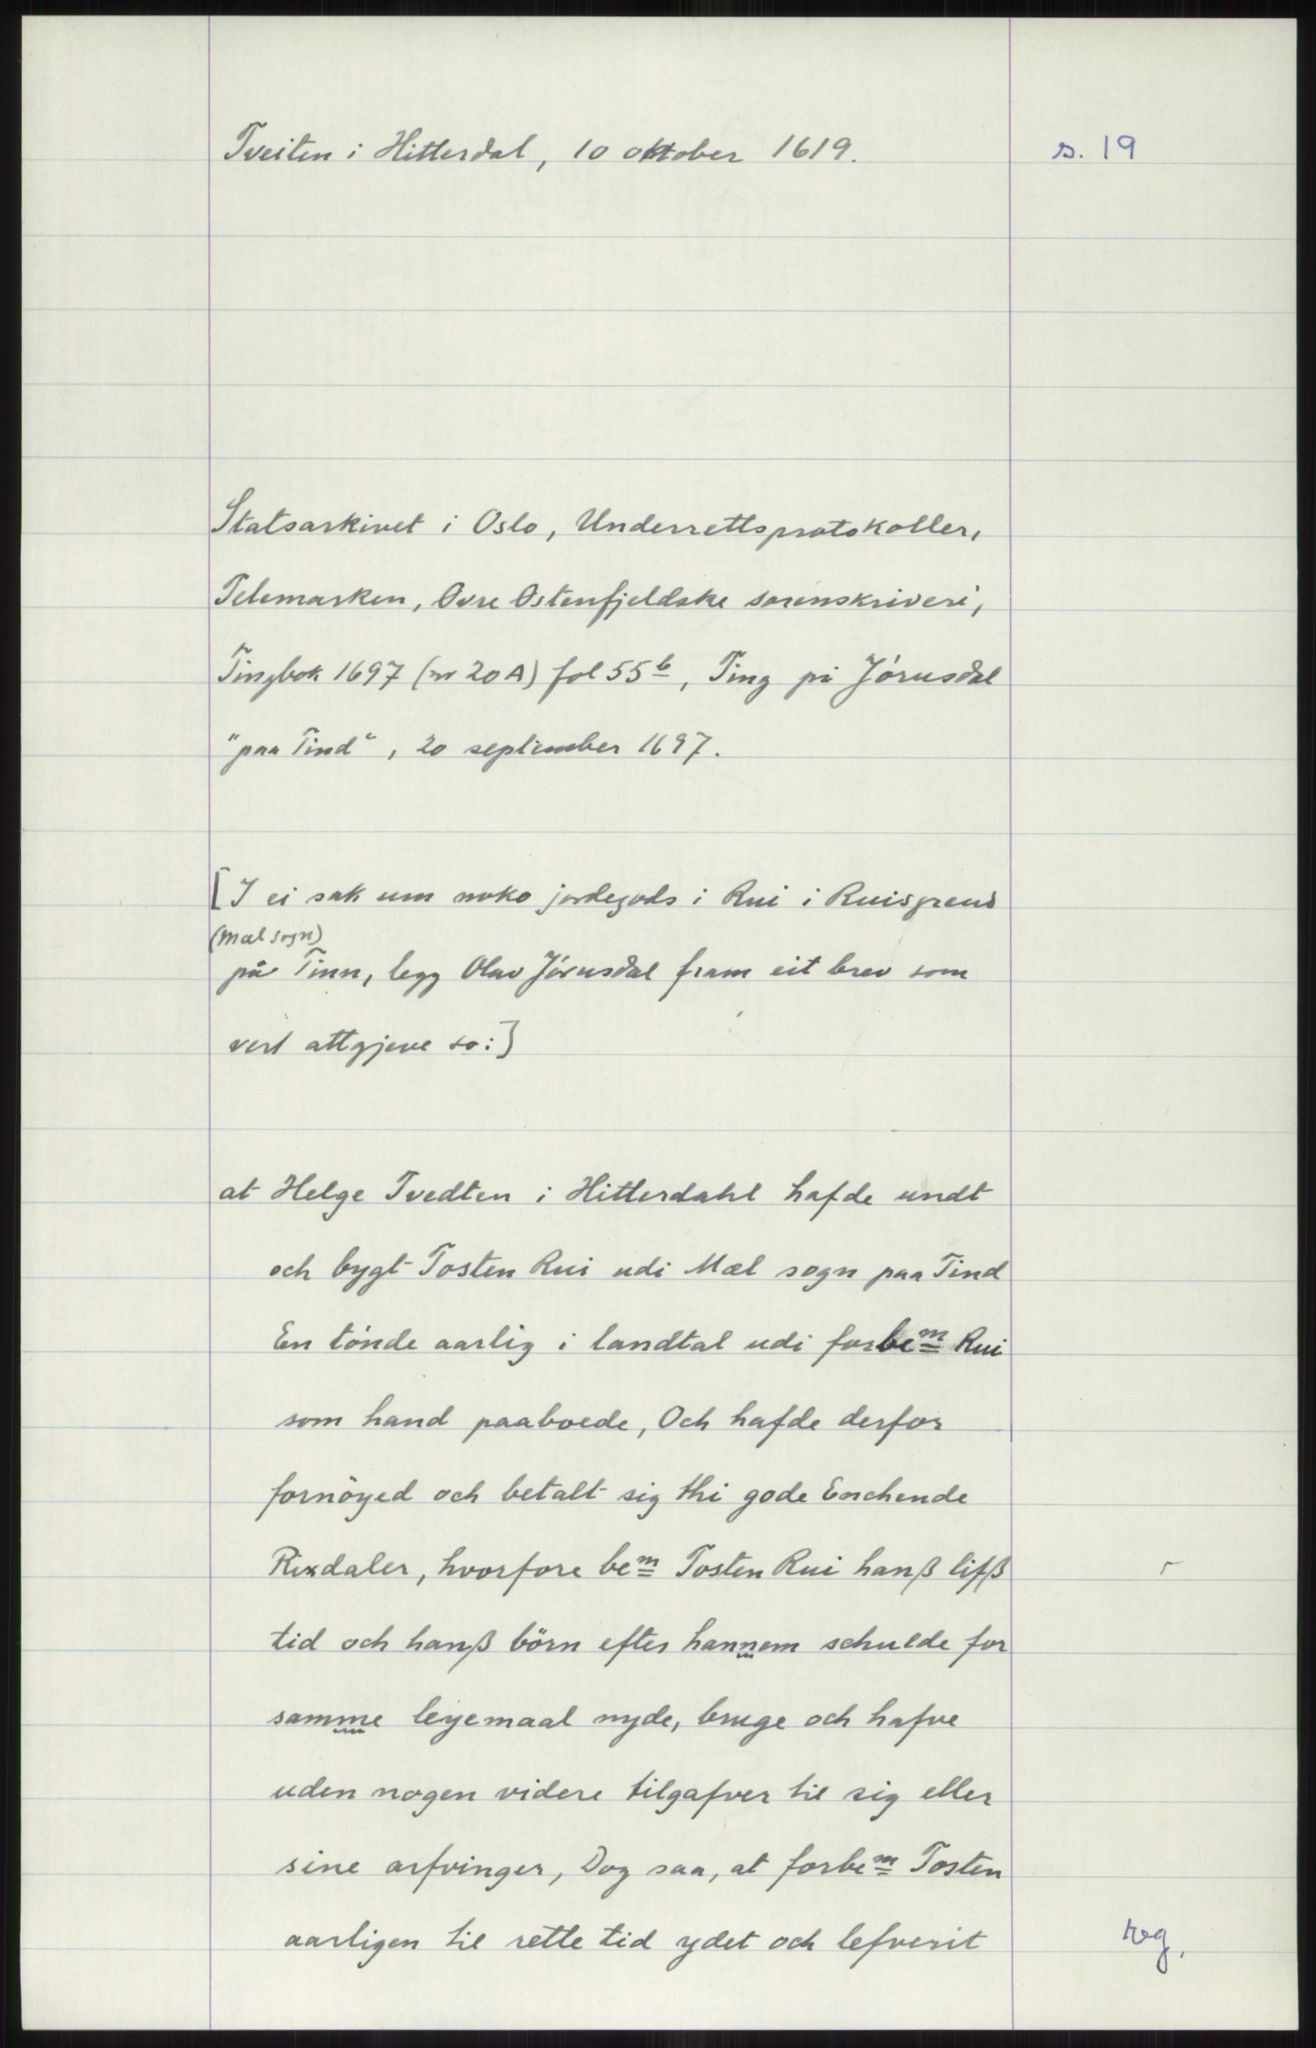 Tveiten i Hitterdal, 10 oktober 1619.
s. 19
Statsarkivet i Oslo, Underrettsprotokoller,
Telemarken, Øvre Østenfjeldske sorenskriveri,
Tingbok 1697 (nr 20A) fol 55ᵇ, Ting på Jórusdal
"paa Tind", 20 september 1697.
[I ei sak um noko jordegods i Rui i Ruisgrend
(Mæl sogn)
på Tinn, legg Olav Jórusdal fram eit brev som
vert attgjeve so:]
at Helge Tvedten i Hitterdahl hafde undt
och bygt Tosten Rui udi Mæl sogn paa Tind
En tónde aarlig i landtal udi forbeᵐ Rui
som hand paaboede, Och hafde derfor
fornöyed och betalt sig thi gode Enchende
Rixdaler, hvorfore beᵐ Tosten Rui hanß lifß
tid och hanß börn efter hannem schulde for
samme leyemaal nyde, bruge och hafve
uden nogen videre tilgafver til sig eller
sine arfvinger, Dog saa, at forbeᵐ Tosten
aarligen til rette tid ydet och lefverit
reg.